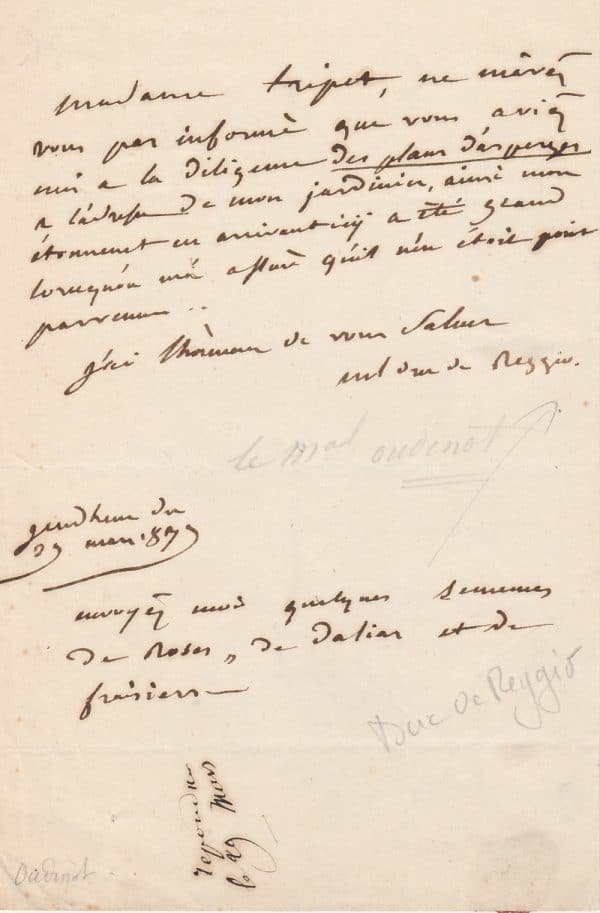 Madame tripet, ne m'avéz
vous pas informé que vous aviéz
mis a la diligense des plans d'asperges
a l'adresse de mon jardinier, aussi mon
étonnement en arrivant icy a été grand
lorsqu'on m'a assuré qu'il n'en étoit point
parvenu..
j'ai l'honneur de vous saluer
ml duc de Reggio.
le Mal oudinot
29 mars
envoyéz moi quelques semences
de Roses, de daliar et de
fraisiers
Duc de Reggio
repondue
le 29 Mars
Oudinot